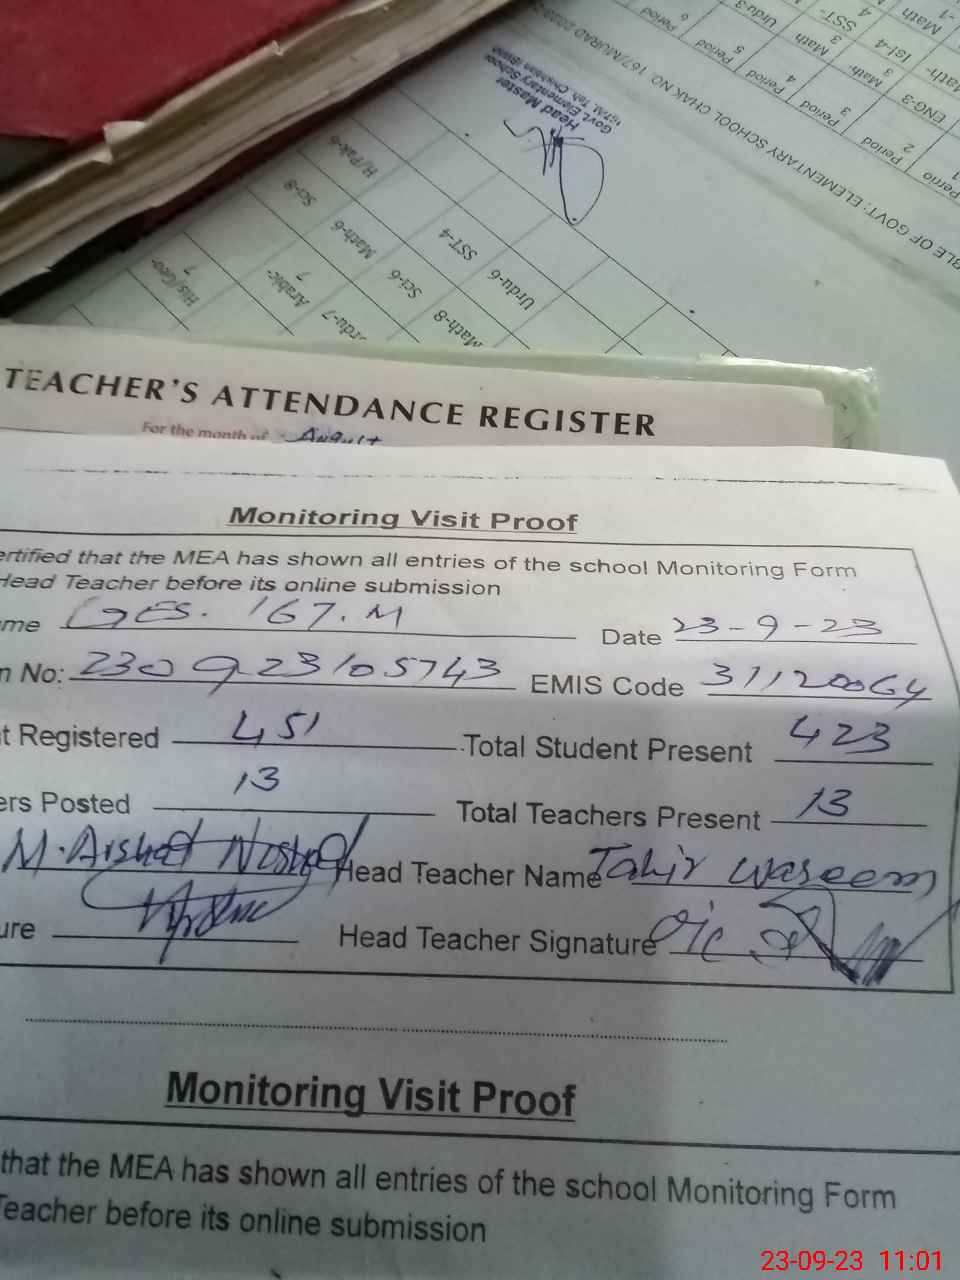 Period
6
Urdu-3
Period
5
Math
3
SST-
4
Math
-1
Period
4
Math-
3
Isl-4
Math-
Period
3
ENG-3
Period
2
Perio
1
BLE OF GOVT: ELEMENTARY SCHOOL CHAK NO. 167/MURAD
Head Master
Govt. Elementary School
167/M, Teh. Chishtian
H/Pak-6
Sci-8
Math-6
SST-4
His/Geo-
7
Arabic-
7
Sci-6
Urdu-6
rdu-7
Math-8
TEACHER'S ATTENDANCE REGISTER
For the month of August
Monitoring Visit Proof
ertified that the MEA has shown all entries of the school Monitoring Form
Head Teacher before its online submission
me GES. 167.M Date 23-9-23
n No: 230923105743 EMIS Code 31120064
t Registered 451 Total Student Present 423
ers Posted 13 Total Teachers Present 13
M. Arshad Head Teacher Name Tahir Waseem
ure Head Teacher Signature
Monitoring Visit Proof
that the MEA has shown all entries of the school Monitoring Form
Teacher before its online submission
23-09-23 11:01